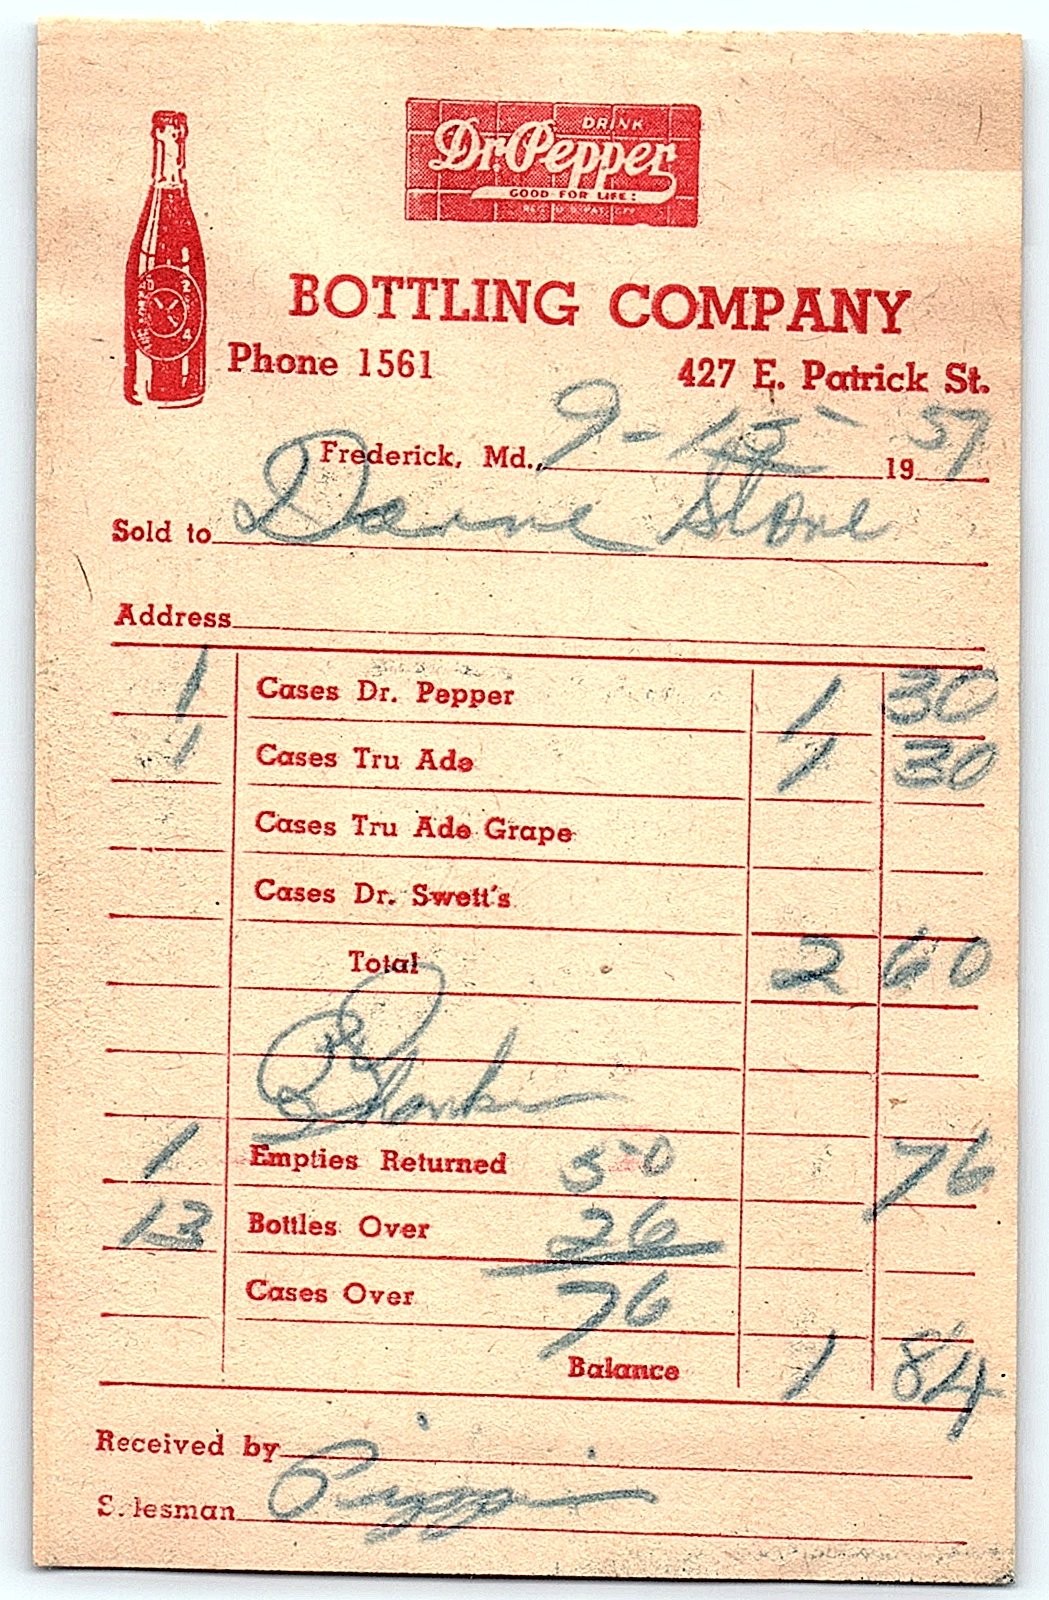 DRINK
Dr. Pepper
GOOD FOR LIFE!
10 2 4
BOTTLING COMPANY
Phone 1561 427 E. Patrick St.
Frederick, Md., 9-15- 1957
Sold to
Address
1 Cases Dr. Pepper 1 30
1 Cases Tru Ade 1 30
Cases Tru Ade Grape
Cases Dr. Swett's
Total 2 60
1 Empties Returned 50 76
13 Bottles Over 26
Cases Over 76
Balance 1 84
Received by
Salesman